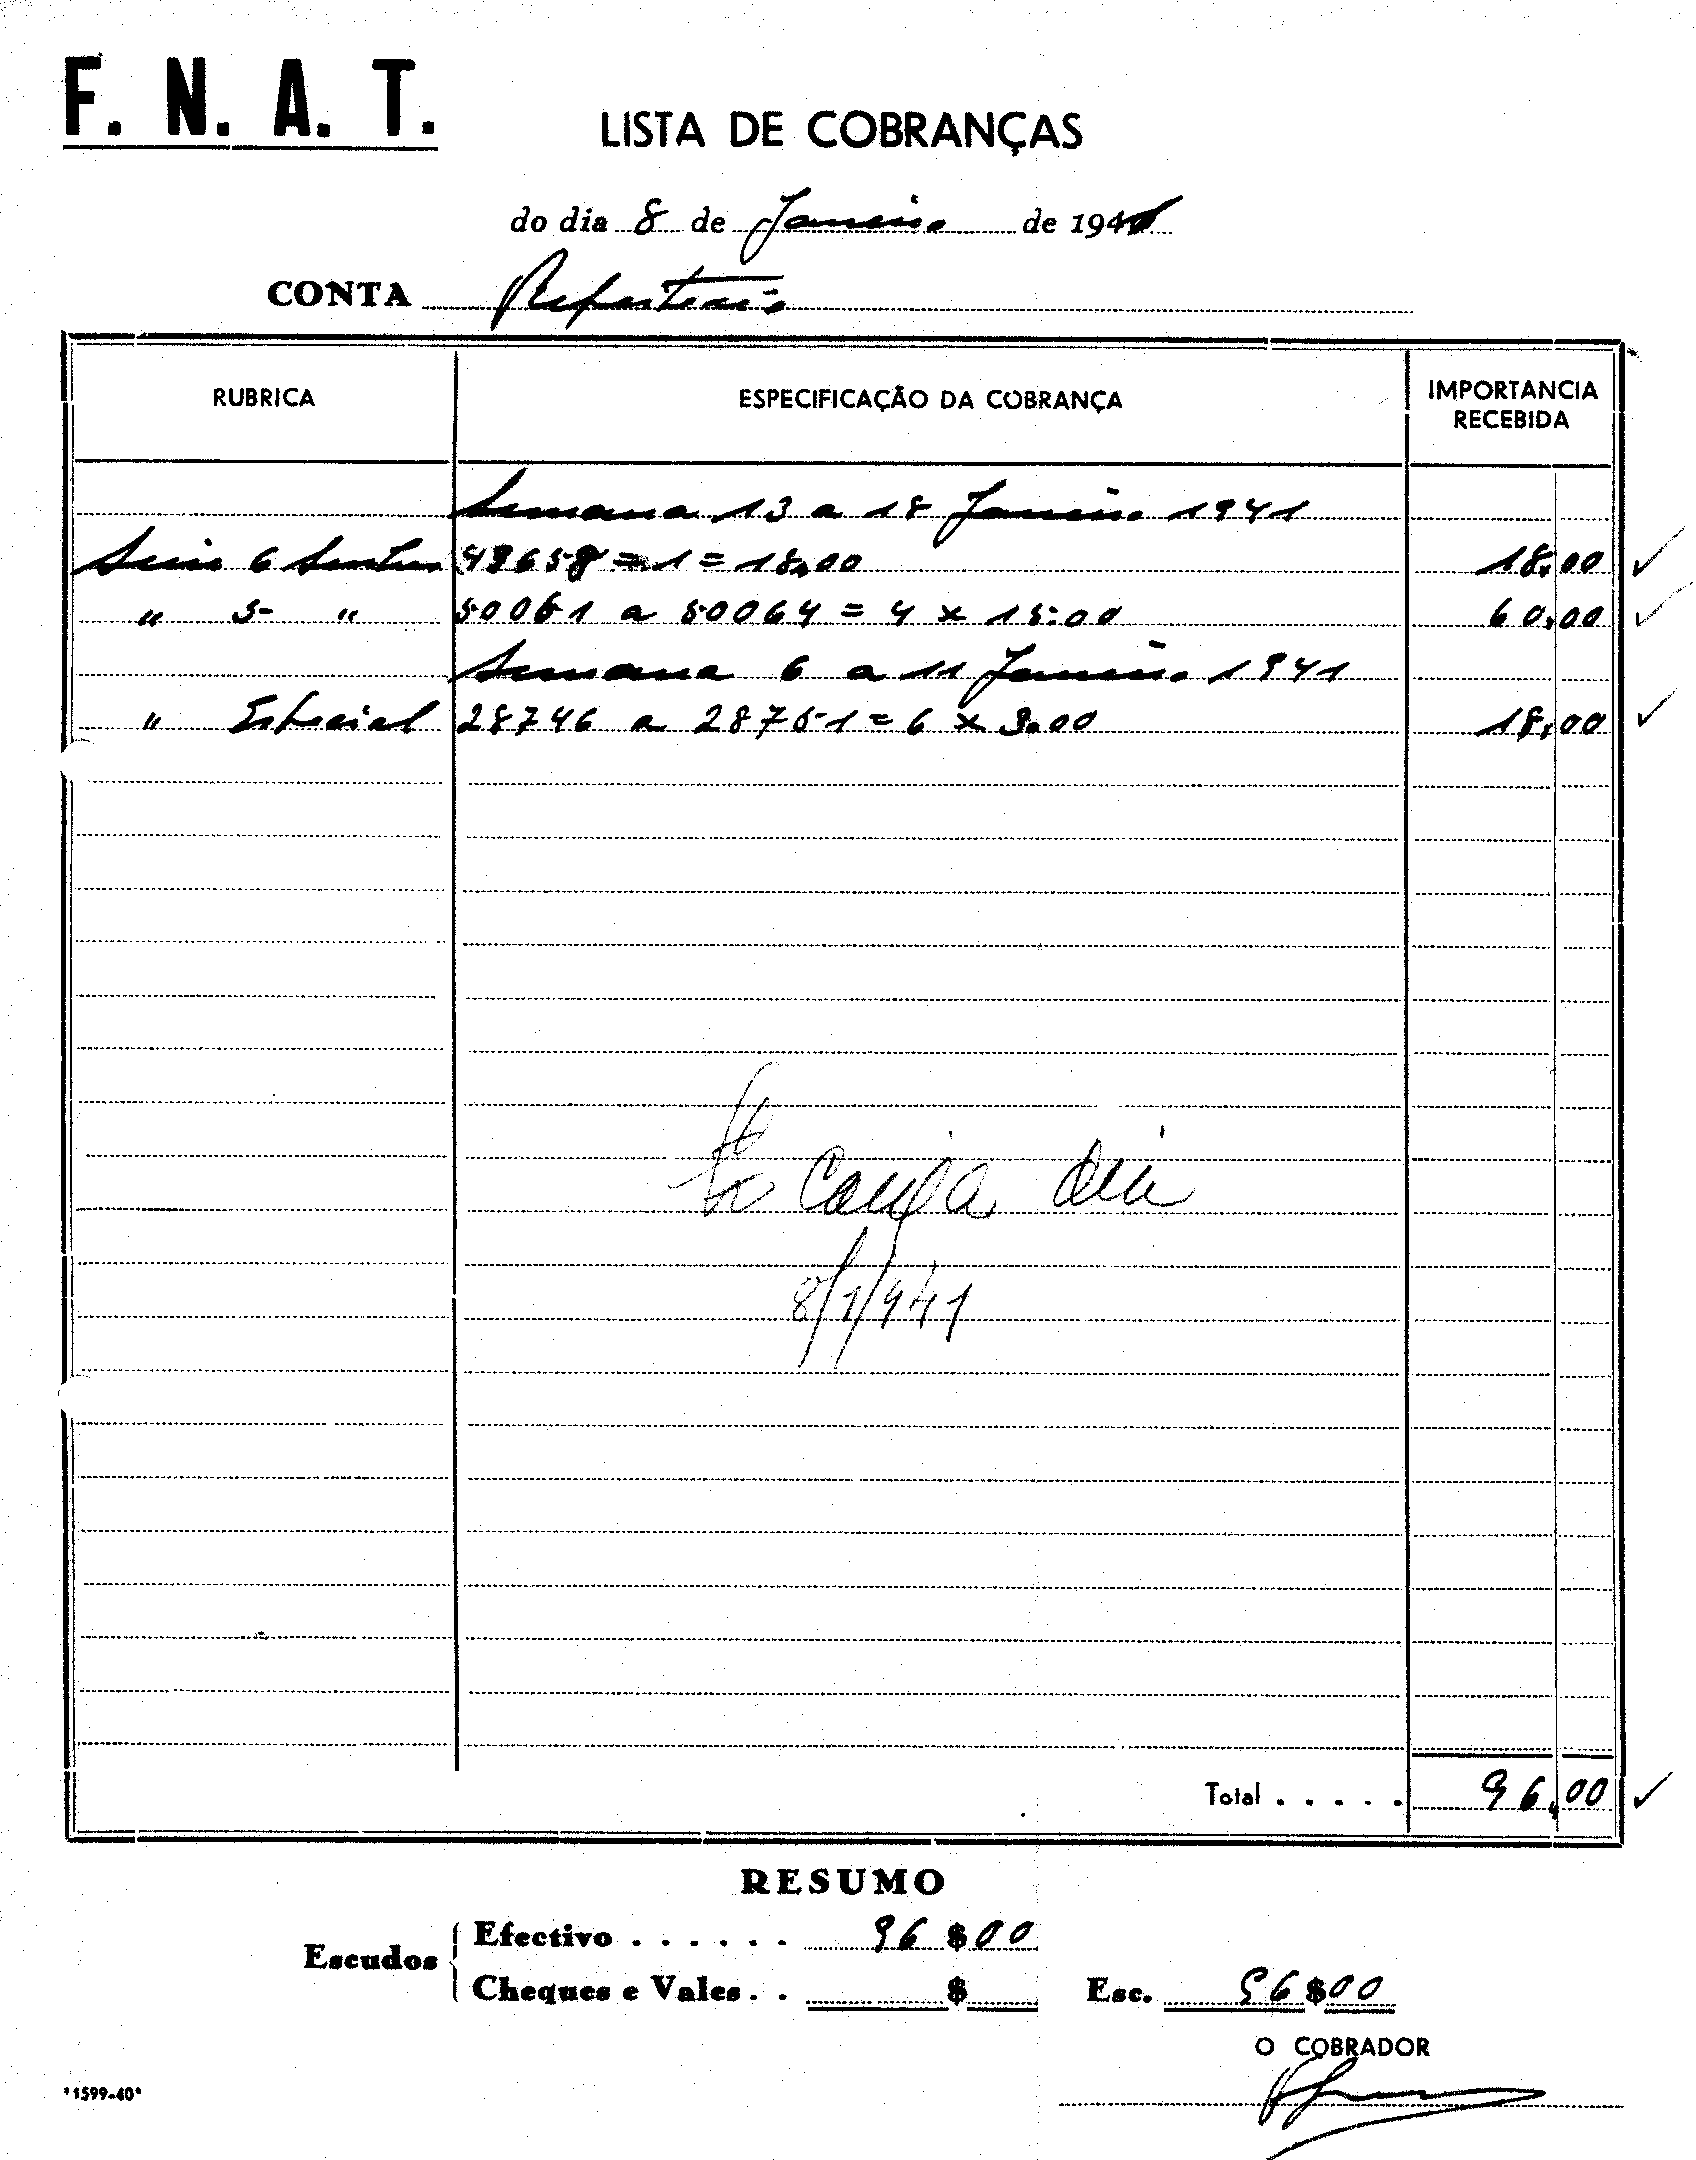 F. N. A. T.
LISTA DE COBRANÇAS
do dia 8 de Janeiro de 1941
CONTA Refeitorio
RUBRICA ESPECIFICAÇÃO DA COBRANÇA IMPORTANCIA RECEBIDA
Semana 13 a 18 Janeiro 1941
Serie 6 Senhas = 1 = 18,00 18,00
" 5 " 50061 a 50064 = 4 x 15.00 60,00
Semana 6 a 11 Janeiro 1941
" Especial 28746 a 28751 = 6 x 3.00 18,00
Caixa dia
8/1/941
Total . . . . . 96,00
RESUMO
Escudos Efectivo . . . . . . 96 $ 00
Cheques e Vales . . $ Esc. 96 $ 00
O COBRADOR
*1599-40*